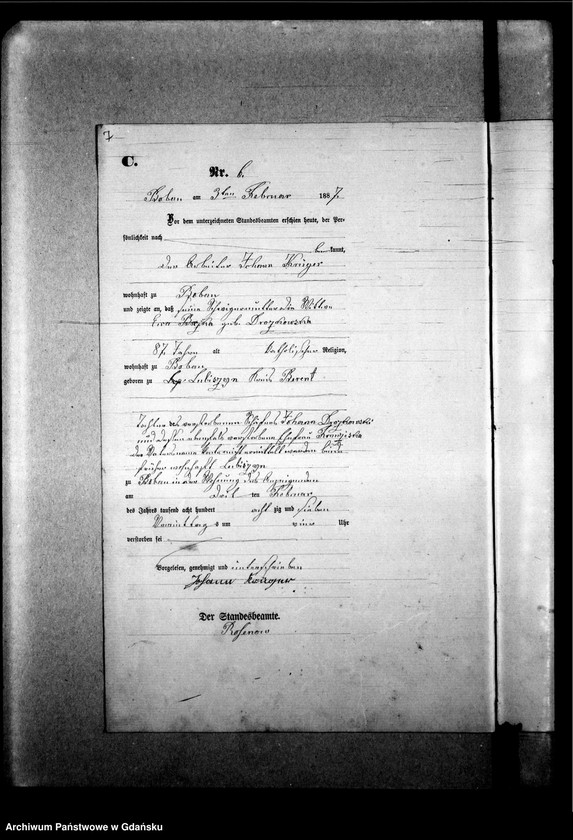 7
C.
Nr. 6.
Boban am 3ten Februar 1887.
Vor dem unterzeichneten Standesbeamten erschien heute, der Per-
sönlichkeit nach
bekannt,
der Arbeiter Johann Krüger
wohnhaft zu Boban
und zeigte an, daß seine Schwiegermutter die Wittwe
Eva geb. Drozdowska
87 Jahre alt katholischer Religion,
wohnhaft zu Boban
geboren zu Lubiszyn Kreis Berent
Tochter des verstorbenen Schäfers Johann
und dessen ebenfalls verstorbene Ehefrau Franziska
der Vatersname konnte nicht ermittelt werden beide
früher wohnhaft Lubiszyn
zu Boban in der Wohnung des Anzeigenden
am drei ten Februar
des Jahres tausend acht hundert acht zig und sieben
Vormittags um vier Uhr
verstorben sei
Vorgelesen, genehmigt und unterschrieben
Johann Krüger
Der Standesbeamte.
Rosenow
Archiwum Państwowe w Gdańsku